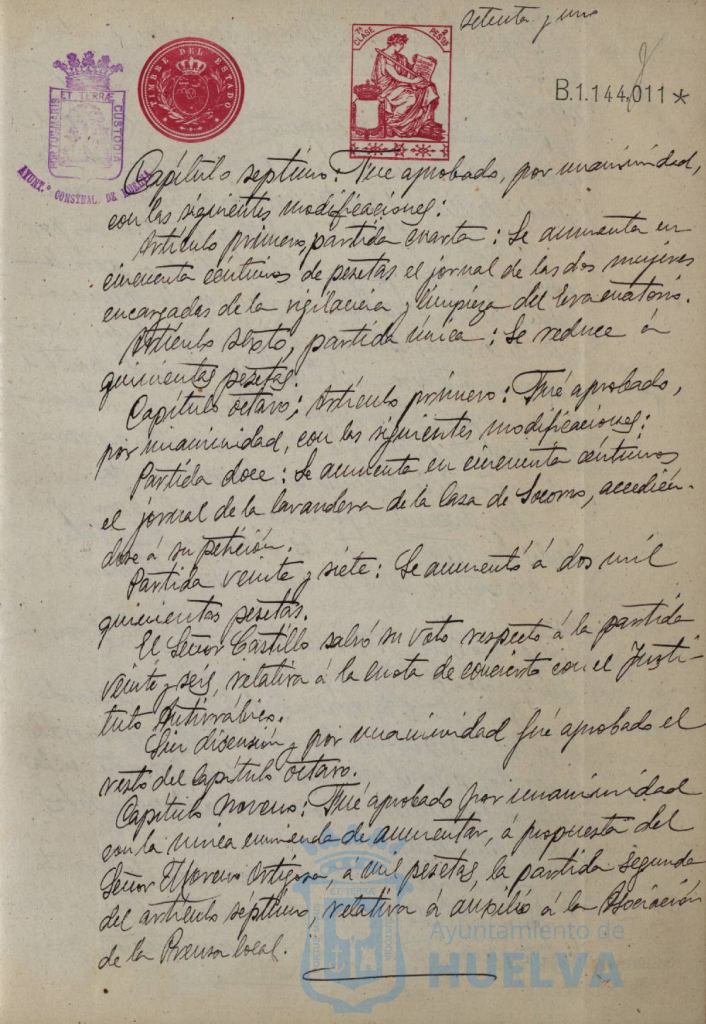 setenta y uno
7ª CLASE 2 PESETAS
TIMBRE DEL ESTADO
ET TERRÆ CUSTODIA
PORTUS MARIS
AYUNT.º CONSTNAL. DE HUELVA
B.1.144,011*
Capítulo septimo: Fué aprobado, por unanimidad,
con las siguientes modificaciones:
Artículo primero, partida cuarta: Se aumenta en
cincuenta céntimos de pesetas el jornal de las dos mujeres
encargadas de la vigilancia y limpieza del Evacuatorio.
Artículo sexto, partida única: Se reduce á
quinientas pesetas.
Capítulo octavo; Artículo primero: Fué aprobado,
por unanimidad, con las siguientes modificaciones:
Partida doce: Se aumenta en cincuenta céntimos
el jornal de la lavandera de la Casa de Socorro, accedién-
dose á su petición.
Partida veinte y siete: Se aumentó á dos mil
quinientas pesetas.
El Señor Castillo salvó su voto respecto á la partida
veinte y seis, relativa á la cuota de concierto con el Insti-
tuto Antirrábico.
Sin discusión y por unanimidad fué aprobado el
resto del capítulo octavo.
Capítulo noveno: Fué aprobado por unanimidad
con la única enmienda de aumentar, á propuesta del
Señor Moreno Ortigosa, á mil pesetas, la partida segunda
del artículo septimo, relativa á auxilio á la Asociación
de la Prensa local.
Ayuntamiento de
HUELVA